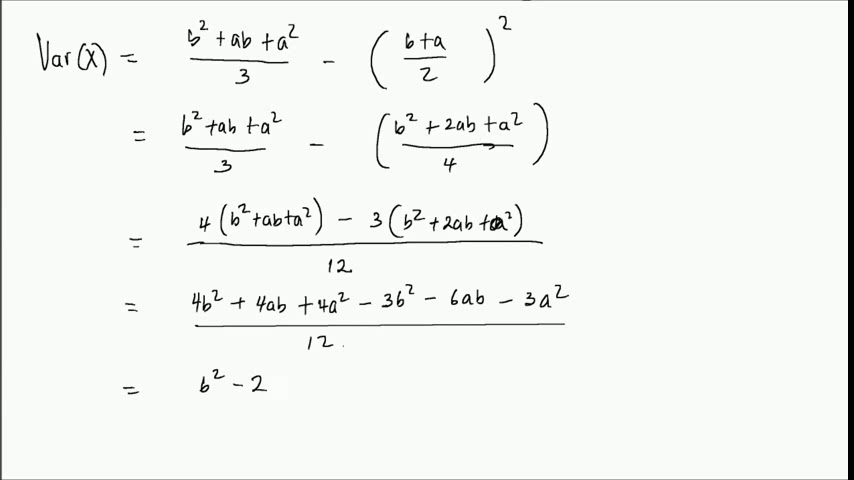 Var(X) = (b² + ab + a²)/3 − ((b+a)/2)²
= (b² + ab + a²)/3 − ((b² + 2ab + a²)/4)
= (4(b² + ab + a²) − 3(b² + 2ab + a²))/12
= (4b² + 4ab + 4a² − 3b² − 6ab − 3a²)/12
= b² − 2